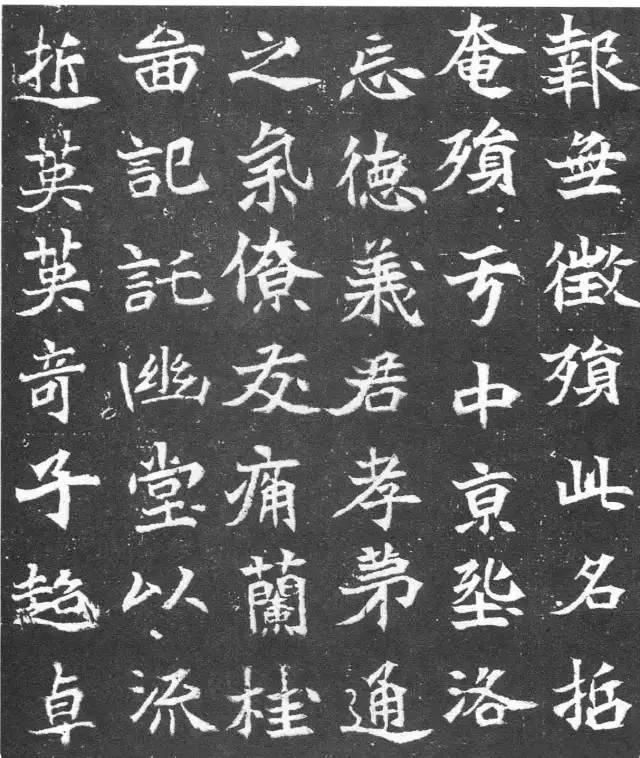 報無徵殞此名括
奄殞亏中京洛
忘德義君孝苐通
之氣僚友痛蘭桂
啚記託幽堂以流
逝英英奇子超卓